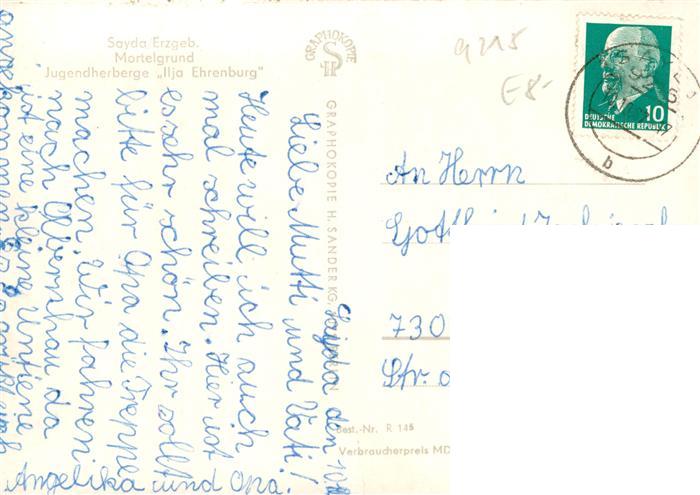 Sayda Erzgeb.
Mortelgrund
Jugendherberge „Ilja Ehrenburg"
GRAPHOKOPIE
GRAPHOKOPIE H. SANDER KG,
9215
E8-
10
DEUTSCHE
DEMOKRATISCHE REPUBLIK
b
An Herrn
730
Str.
Best.-Nr. R 145
Verbraucherpreis MD
Sayda den
Liebe Mutti und Vati!
Heute will ich auch
mal schreiben. Hier ist
es sehr schön. Ihr sollt
bitte für Opa die Treppe
machen. Wir fahren
nach Olbernhau da
ist eine kleine
Angelika und Opa.